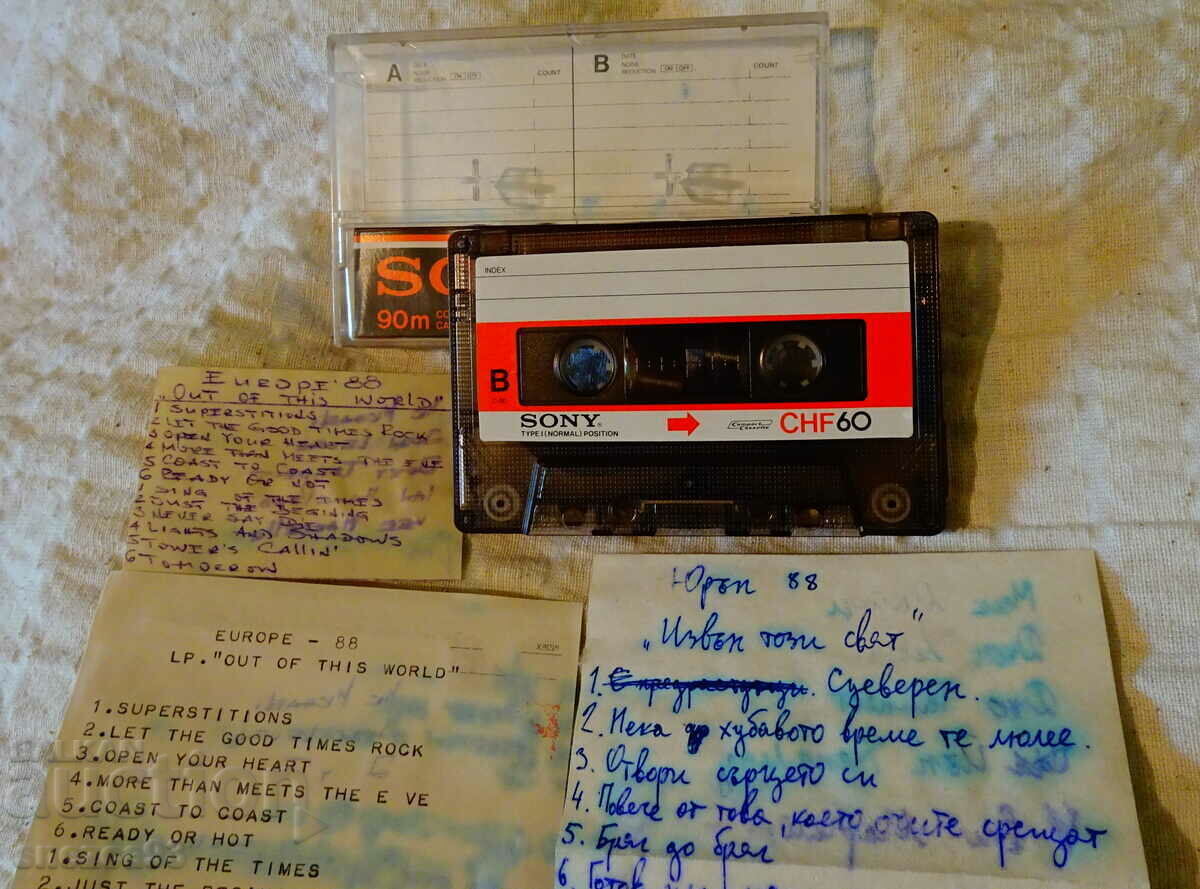 A
DATE
NOISE
REDUCTION ON OFF
COUNT
B
DATE
NOISE
REDUCTION ON OFF
COUNT
90m
INDEX
B
SONY
TYPE I (NORMAL) POSITION
Compact Cassette
CHF60
EUROPE '88
„OUT OF THIS WORLD"
1 SUPERSTITIONS
2 LET THE GOOD TIMES ROCK
3 OPEN YOUR HEART
4 MORE THAN MEETS THE EVE
5 COAST TO COAST
6 READY OR NOT
1 SING OF THE TIMES
2 JUST THE BEGINING
3 NEVER SAY DIE
4 LIGHTS AND SHADOWS
5 TOWER'S CALLIN'
6 TOMOEROW
EUROPE - 88
LP."OUT OF THIS WORLD"
1.SUPERSTITIONS
2.LET THE GOOD TIMES ROCK
3.OPEN YOUR HEART
4.MORE THAN MEETS THE E VE
5.COAST TO COAST
6.READY OR HOT
1.SING OF THE TIMES
2.JUST THE
Юръп 88
„Извън този свят"
1. Суеверен.
2. Нека да хубавото време те люлее.
3. Отвори сърцето си
4. Повече от това, което очите срещат
5. Бряг до бряг
6. Готов